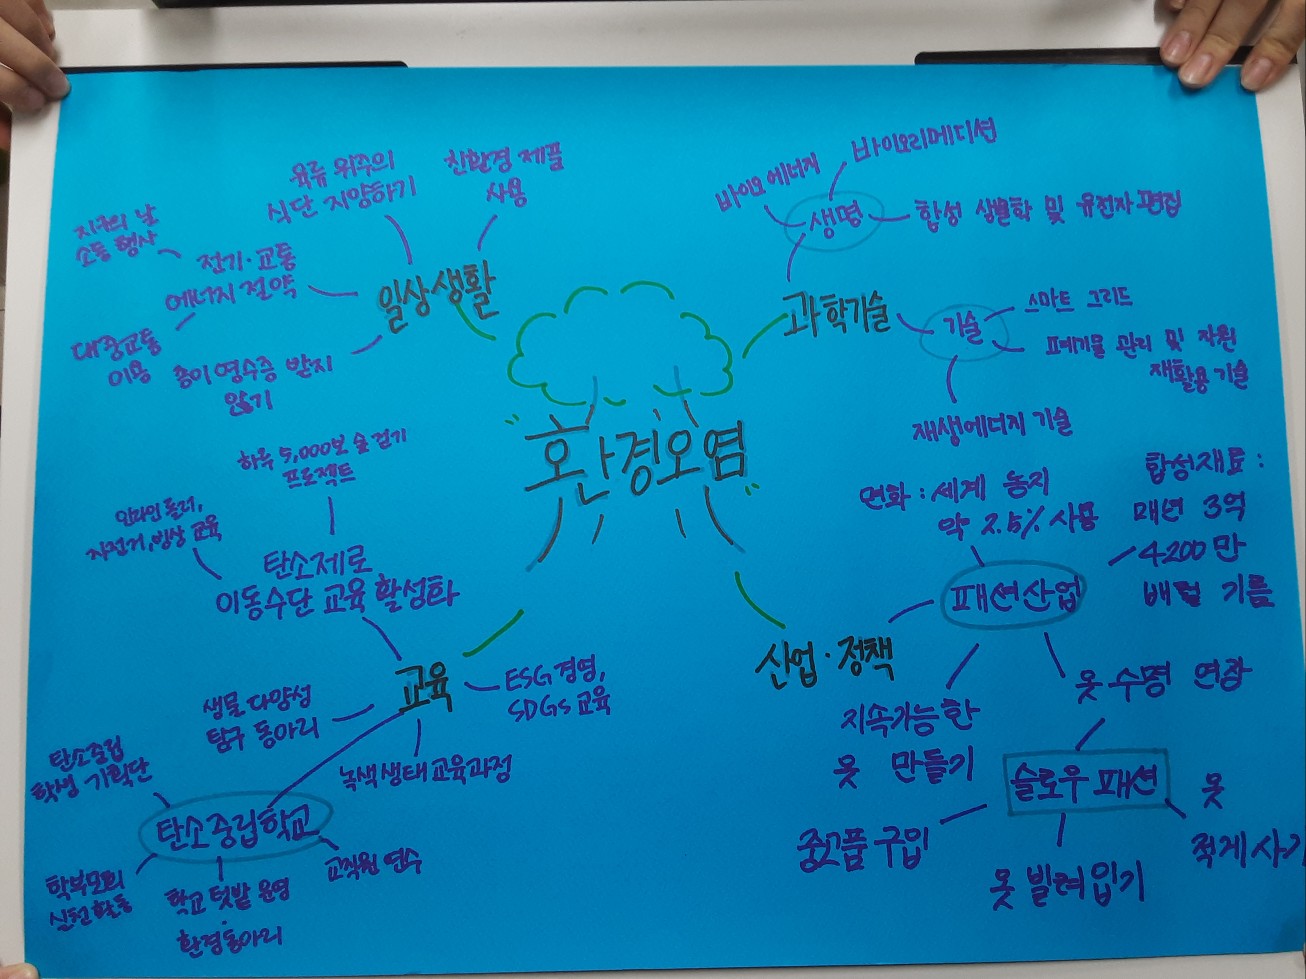 육류 위주의
식단 지양하기
친환경 제품
사용
지구의 날
소등 행사
전기·교통
에너지 절약
일상생활
대중교통
이용
종이 영수증 받지
않기
바이오 에너지
바이오리메디션
생명
합성 생물학 및 유전자 편집
과학기술
기술
스마트 그리드
폐기물 관리 및 자원
재활용 기술
재생에너지 기술
"환경오염"
하루 5,000보 숲 걷기
프로젝트
인라인 롤러,
자전거, 빙상 교육
탄소제로
이동수단 교육 활성화
교육
ESG 경영,
SDGs 교육
생물 다양성
탐구 동아리
녹색 생태 교육과정
탄소중립
학생 기획단
탄소중립학교
학부모회
실천 활동
학교 텃밭 운영
환경동아리
교직원 연수
산업·정책
패션산업
면화 : 세계 농지
약 2.5% 사용
합성재료 :
매년 3억
4200만
배럴 기름
지속가능한
옷 만들기
옷 수명 연장
슬로우 패션
중고품 구입
옷 빌려 입기
옷
적게 사기